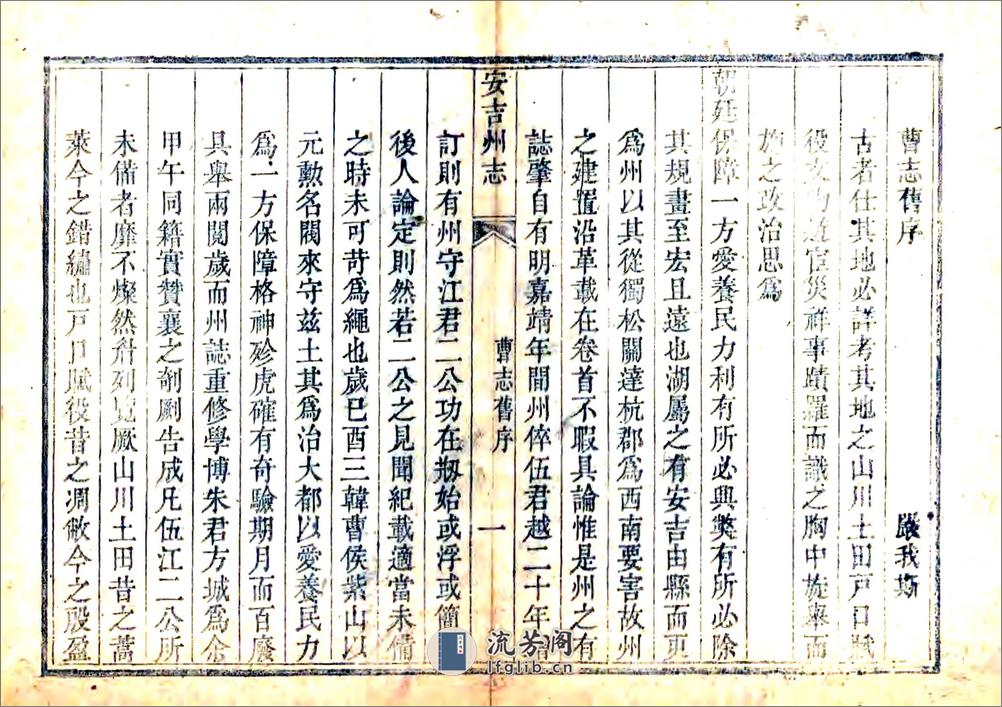 曹志舊序
嚴我斯
古者仕其地必詳考其地之山川土田戸口賦
役文官災祥事蹟羅而識之胸中旋舉而
施之政治思爲
朝廷保障一方愛養民力利有所必興獘有所必除
其規畫至宏且遠也湖屬之有安吉由縣而更
爲州以其從獨松關達杭郡爲西南要害故州
之建置沿革載在卷首不暇具論惟是州之有
誌肇自有明嘉靖年間州倅伍君越二十年
安吉州志
曹志舊序
一
訂則有州守江君二公功在剏始或浮或簡
後人論定則然若二公之見聞紀載適當未備
之時未可苛爲繩也歲已酉三韓曹侯紫山以
元勲名閥來守茲土其爲治大都以愛養民力
爲一方保障格神殄虎確有奇驗期月而百廢
具舉兩閱歲而州誌重修學博朱君方城爲余
甲午同籍實贊襄之剞劂告成凡伍江二公所
未備者靡不燦然列覽厥山川土田昔之蒿
萊今之錯繡也戸口賦役昔之凋敝今之殷盈
流芳閣
lfglib.cn